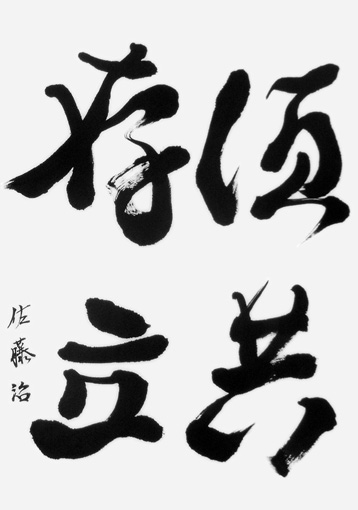 須共
存立
佐藤治